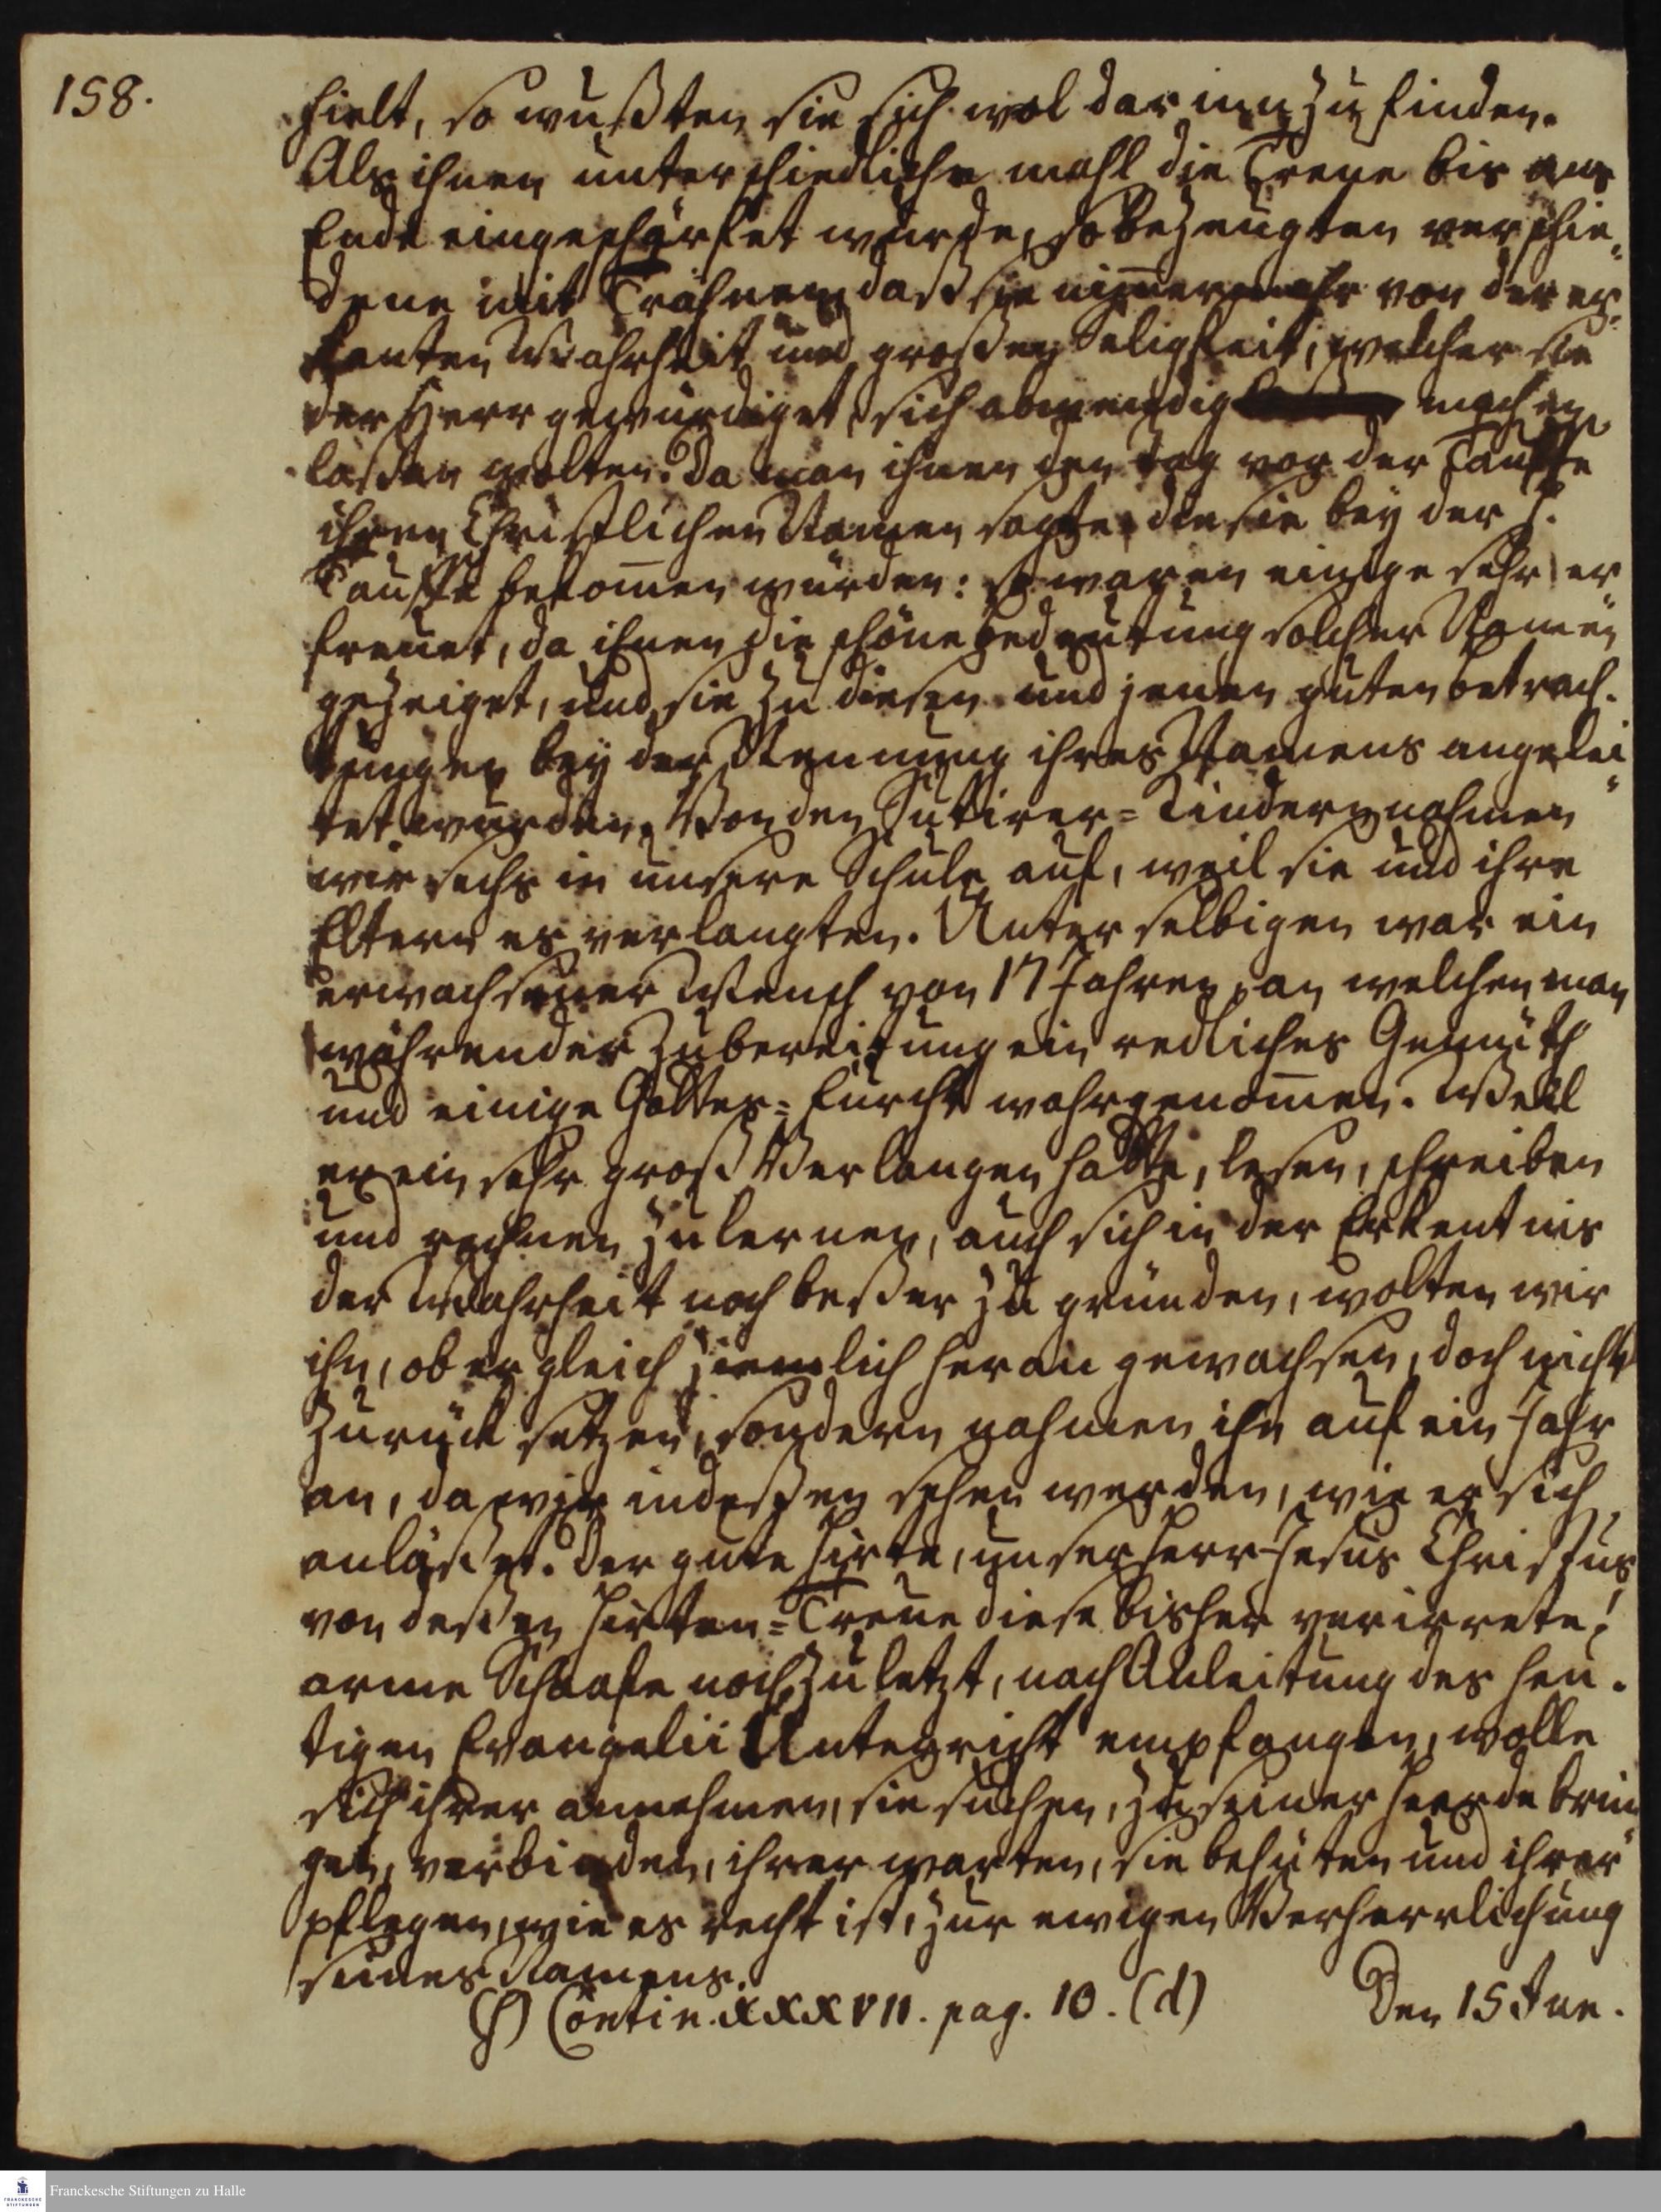 158.
hielt, so wußten sie sich wol darinn zu finden.
Als ihnen unterschiedliche mahl die Treue bis ans
Ende eingeschärfet wurde, so bezeugten verschie„
dene mit Trähnen, daß sie nim̄ermehr von der er„
kanten Wahrheit und großen Seligkeit, welcher sie
der Herr gewürdiget, sich abwendig machen
laßen wolten. Da man ihnen den Tag vor der Tauffe
ihren Christlichen Namen sagte, den sie bey der H.
Tauffe bekom̄en würden: so waren einige sehr er„
freuet, da ihnen die schöne Bedeutung solcher Namen
gezeiget, und sie zu diesen und jenen guten betrach„
tungen bey der Nennung ihres Namens angelei„
tet wurden. Von den Sutirer=Kindern nahmen
wir sechs in unsere Schule auf, weil sie und ihre
Eltern es verlangten. Unter selbigen war ein
erwachsener Mensch von 17 Jahren, an welchen man
währender Zubereitung ein redliches Gemüth
und einige Gottes=Furcht wahrgenom̄en. Weil
er ein sehr groß Verlangen hatte, lesen, schreiben
und rechnen zu lernen, auch sich in der Erkentnis
der Wahrheit noch beßer zu gründen, wolten wir
ihn, ob er gleich ziemlich heran gewachsen, doch nicht
zurück setzen, sondern nahmen ihn auf ein Jahr
an, da wir indeßen sehen werden, wie er sich
anläßet. Der gute Hirte, unser Herr Jesus Christus
von deßen Hirten=Treue diese bisher verirrete,
arme Schaafe noch zuletzt, nach Anleitung des heu„
tigen Evangelii Unterricht empfangen, wolle
sich ihrer annehmen, sie suchen, zu seiner Heerde brin„
gen, verbinden, ihrer warten, sie behüten und ihrer
pflegen, wie es recht ist, zur ewigen Verherrlichung
seines Namens.
Contin. XXXVII. pag. 10. (d) Den 15 Jun.
Franckesche Stiftungen zu Halle